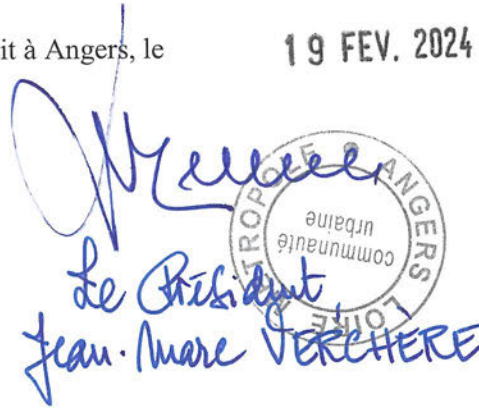 it à Angers, le
19 FEV. 2024
ANGERS LOIRE METROPOLE
communauté
urbaine
Le Président
Jean-Marc VERCHERE